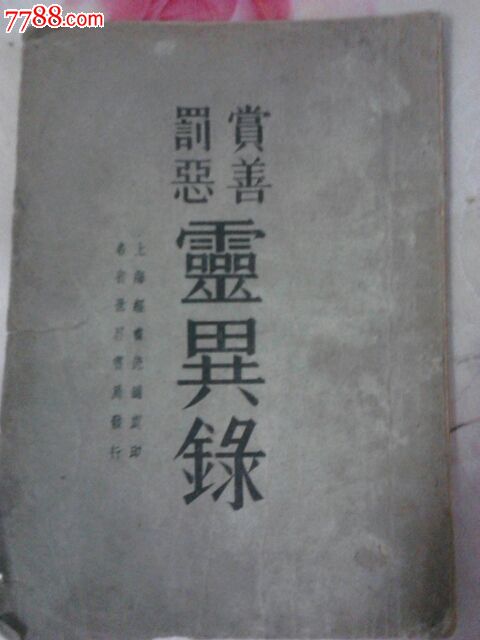 7788.com
賞善
罰惡
靈異錄
上海
印
書局發行